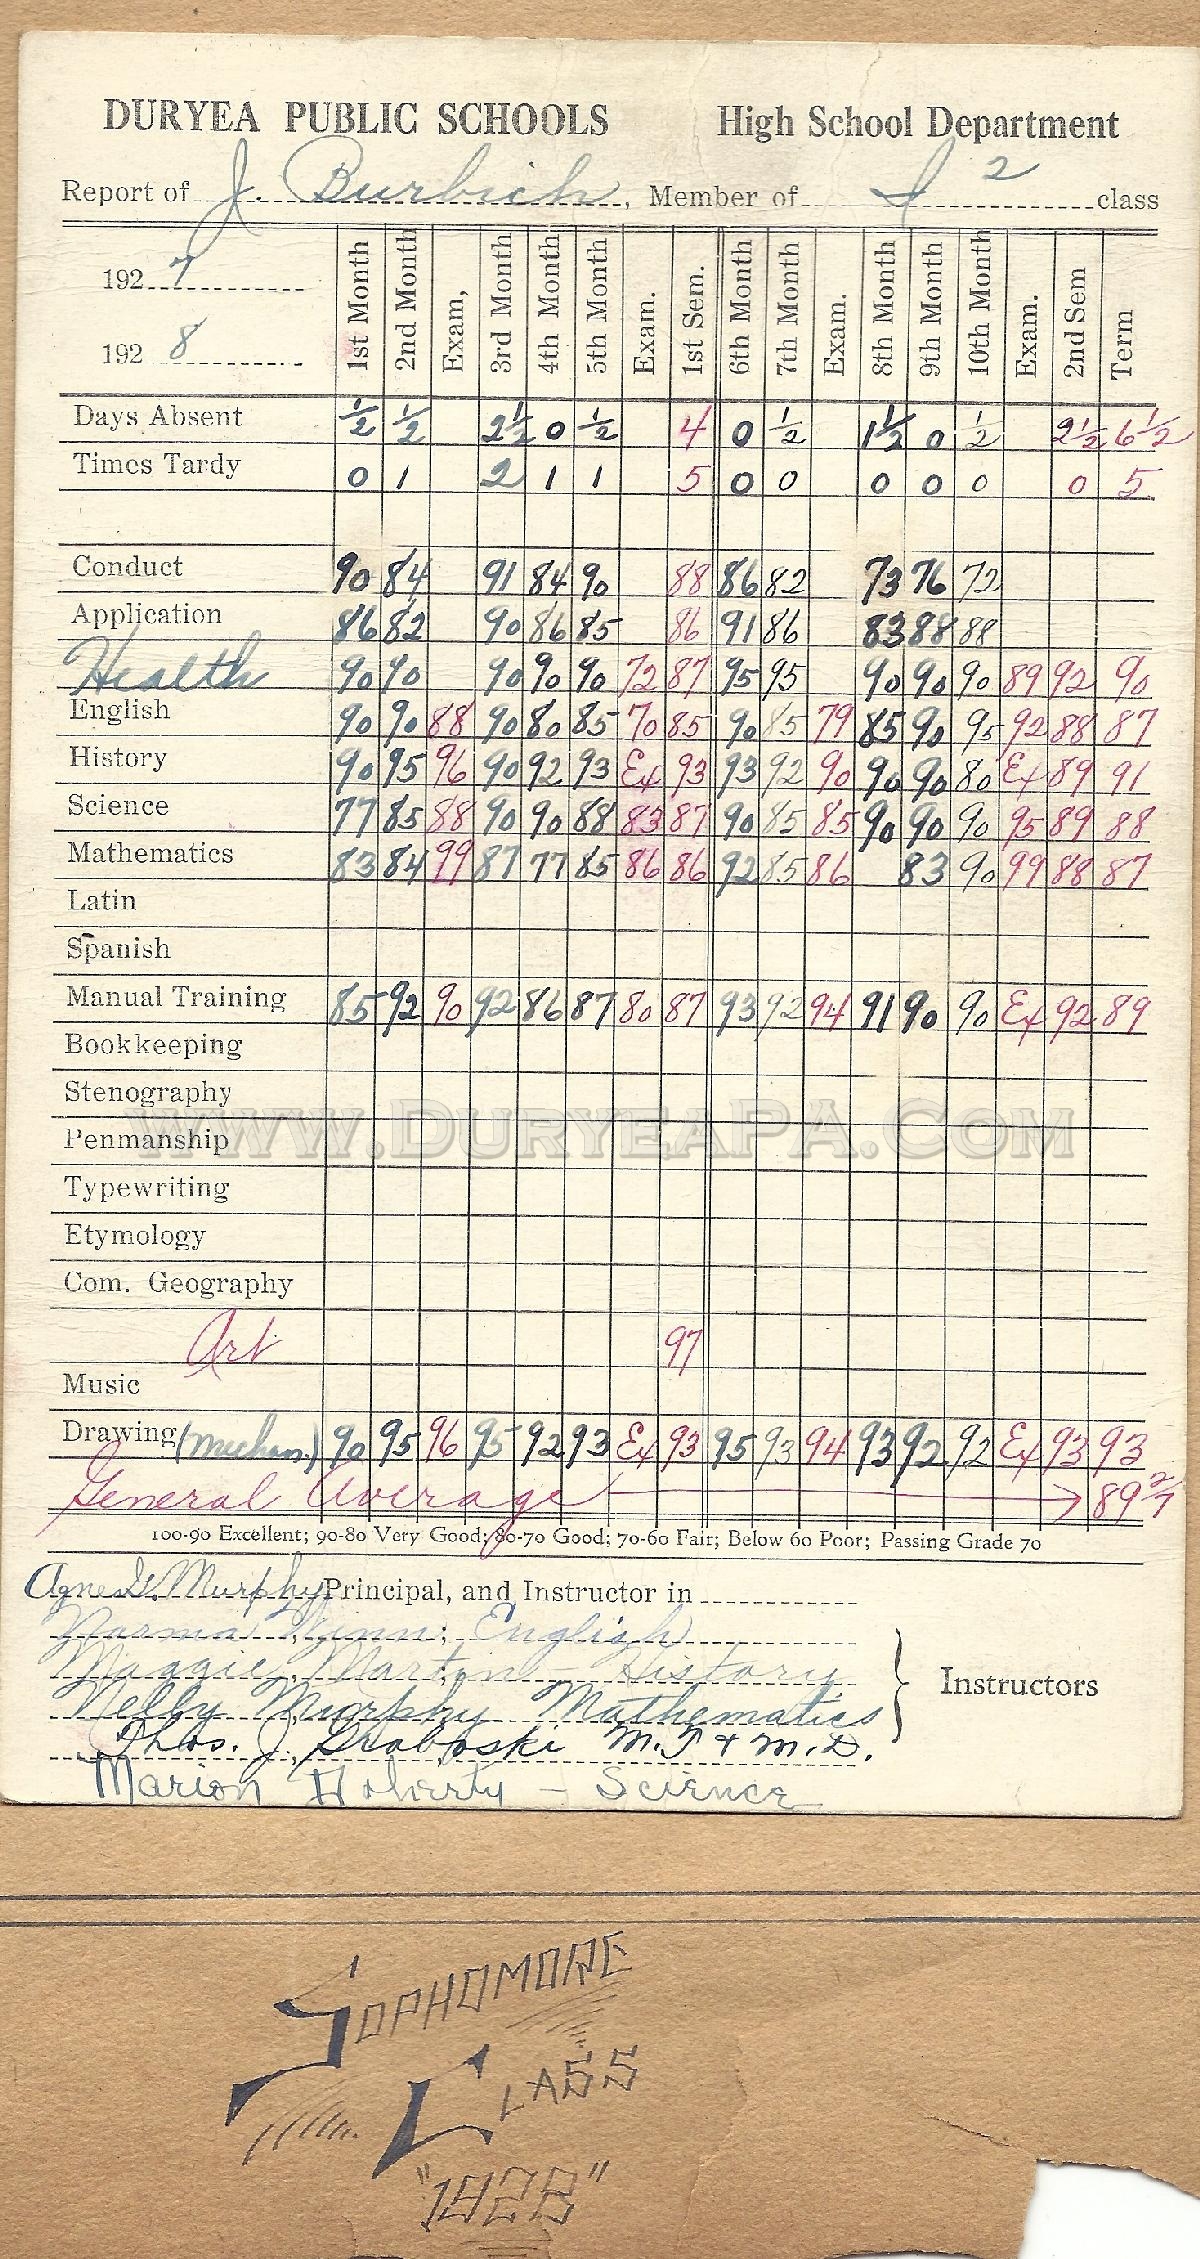 DURYEA PUBLIC SCHOOLS High School Department
Report of J. Burbich, Member of S 2 class
192 7
192 8
1st Month 2nd Month Exam, 3rd Month 4th Month 5th Month Exam. 1st Sem. 6th Month 7th Month Exam. 8th Month 9th Month 10th Month Exam. 2nd Sem Term
Days Absent ½ ½ 2½ 0 ½ 4 0 ½ 1½ 0 ½ 2½ 6½
Times Tardy 0 1 2 1 1 5 0 0 0 0 0 0 5
Conduct 90 84 91 84 90 88 86 82 73 76 72
Application 86 82 90 86 85 86 91 86 83 88 88
Health 90 90 90 90 90 72 87 95 95 90 90 90 89 92 90
English 90 90 88 90 80 85 70 85 90 85 79 85 90 95 92 88 87
History 90 95 96 90 92 93 Ex 93 93 92 90 90 90 80 Ex 89 91
Science 77 85 88 90 90 88 83 87 90 85 85 90 90 90 95 89 88
Mathematics 83 84 99 87 77 85 86 86 92 85 86 83 90 99 88 87
Latin
Spanish
Manual Training 85 92 90 92 86 87 80 87 93 92 94 91 90 90 Ex 92 89
Bookkeeping
Stenography
www.DuryeaPA.com
Penmanship
Typewriting
Etymology
Com. Geography
Art 97
Music
Drawing (Mechan.) 90 95 96 95 92 93 Ex 93 95 93 94 93 92 92 Ex 93 93
General Average 89 2/7
100-90 Excellent; 90-80 Very Good; 80-70 Good; 70-60 Fair; Below 60 Poor; Passing Grade 70
Agnes G. Murphy Principal, and Instructor in
Norma Winn; English
Maggie Martin - History
Instructors
Nelly Murphy Mathematics
Thos. J. Graboski M.T & M.D.
Marion Doherty - Science
SOPHOMORE
CLASS
"1928"